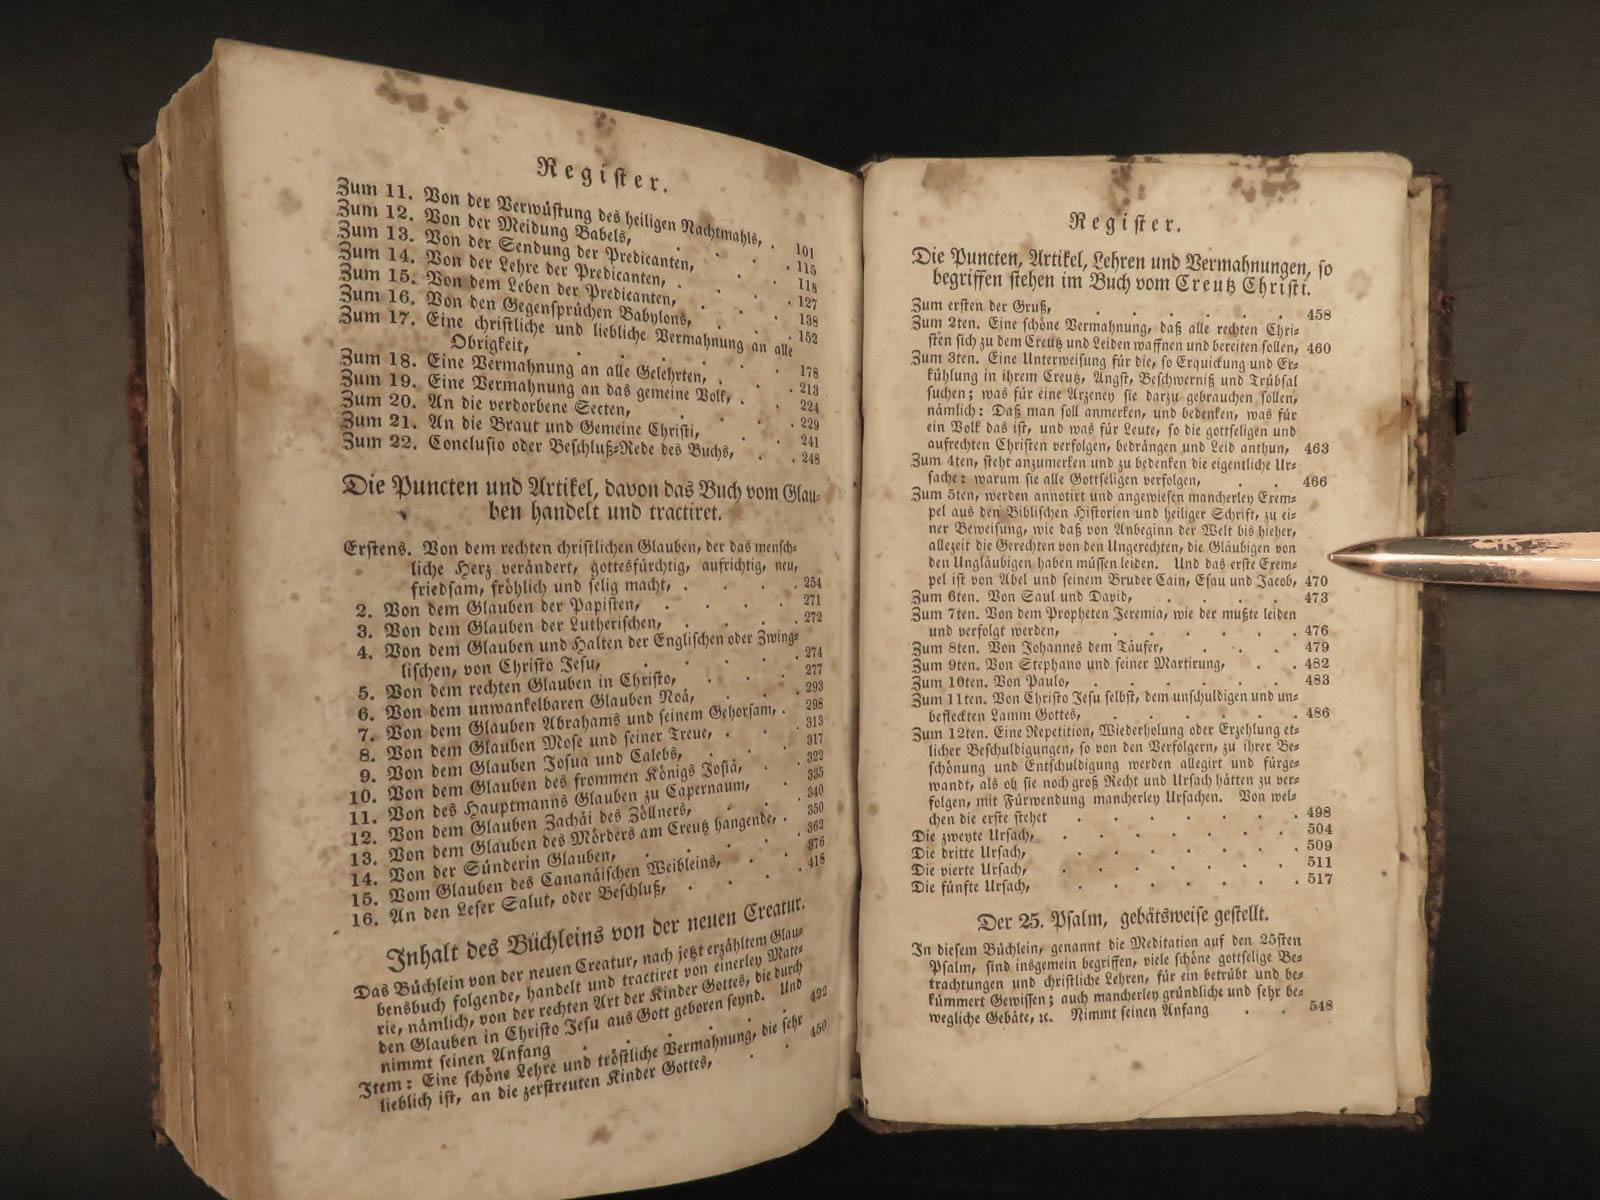 Register.
Zum 11. Von der Verwüstung des heiligen Nachtmahls, . 101
Zum 12. Von der Meidung Babels, . . 115
Zum 13. Von der Sendung der Predicanten, . . 118
Zum 14. Von der Lehre der Predicanten, . . . 127
Zum 15. Von dem Leben der Predicanten, . . . 138
Zum 16. Von den Gegensprüchen Babylons, . . . 152
Zum 17. Eine christliche und liebliche Vermahnung an alle
Obrigkeit, . . . . . 178
Zum 18. Eine Vermahnung an alle Gelehrten, . . . 213
Zum 19. Eine Vermahnung an das gemeine Volk, . . 224
Zum 20. An die verdorbene Secten, . . . 229
Zum 21. An die Braut und Gemeine Christi, . . . 241
Zum 22. Conclusio oder Beschluß-Rede des Buchs, . . 248
Die Puncten und Artikel, davon das Buch vom Glau-
ben handelt und tractiret.
Erstens. Von dem rechten christlichen Glauben, der das mensch-
liche Herz verändert, gottesfürchtig, aufrichtig, neu,
friedsam, fröhlich und selig macht, . . . . 254
2. Von dem Glauben der Papisten, . . . . 271
3. Von dem Glauben der Lutherischen, . . . . 272
4. Von dem Glauben und Halten der Englischen oder Zwing-
lischen, von Christo Jesu, . . . . 274
5. Von dem rechten Glauben in Christo, . . . 277
6. Von dem unwankelbaren Glauben Noä, . . . 293
7. Von dem Glauben Abrahams und seinem Gehorsam, . 298
8. Von dem Glauben Mose und seiner Treue, . . 313
9. Von dem Glauben Josua und Calebs, . . . 317
10. Von dem Glauben des frommen Königs Josiä, . . 322
11. Von des Hauptmanns Glauben zu Capernaum, . . 335
12. Von dem Glauben Zachäi des Zöllners, . . . 340
13. Von dem Glauben des Mörders am Creutz hangende, . 350
14. Von der Sünderin Glauben, . . . . 362
15. Vom Glauben des Cananäischen Weibleins, . . 376
16. An den Leser Salut, oder Beschluß, . . . . 418
Inhalt des Büchleins von der neuen Creatur.
Das Büchlein von der neuen Creatur, nach jetzt erzähltem Glau-
bensbuch folgende, handelt und tractiret von einerley Mate-
rie, nämlich, von der rechten Art der Kinder Gottes, die durch
den Glauben in Christo Jesu aus Gott geboren seynd. Und
nimmt seinen Anfang . . . . . 422
Item: Eine schöne Lehre und tröstliche Vermahnung, die sehr
lieblich ist, an die zerstreuten Kinder Gottes, . . 450
Register.
Die Puncten, Artikel, Lehren und Vermahnungen, so
begriffen stehen im Buch vom Creutz Christi.
Zum ersten der Gruß, . . . . . . 458
Zum 2ten. Eine schöne Vermahnung, daß alle rechten Chri-
sten sich zu dem Creutz und Leiden waffnen und bereiten sollen, 460
Zum 3ten. Eine Unterweisung für die, so Erquickung und Er-
kühlung in ihrem Creutz, Angst, Beschwerniß und Trübsal
suchen; was für eine Arzeney sie darzu gebrauchen sollen,
nämlich: Daß man soll anmerken, und bedenken, was für
ein Volk das ist, und was für Leute, so die gottseligen und
aufrechten Christen verfolgen, bedrängen und Leid anthun, 463
Zum 4ten, steht anzumerken und zu bedenken die eigentliche Ur-
sache: warum sie alle Gottseligen verfolgen, . . 466
Zum 5ten, werden annotirt und angewiesen mancherley Exem-
pel aus den Biblischen Historien und heiliger Schrift, zu ei-
ner Beweisung, wie daß von Anbeginn der Welt bis hieher,
allezeit die Gerechten von den Ungerechten, die Gläubigen von
den Ungläubigen haben müssen leiden. Und das erste Exem-
pel ist von Abel und seinem Bruder Cain, Esau und Jacob, 470
Zum 6ten. Von Saul und David, . . . . 473
Zum 7ten. Von dem Propheten Jeremia, wie der mußte leiden
und verfolgt werden, . . . . . . 476
Zum 8ten. Von Johannes dem Täufer, . . . 479
Zum 9ten. Von Stephano und seiner Martirung, . . 482
Zum 10ten. Von Paulo, . . . . . . 483
Zum 11ten. Von Christo Jesu selbst, dem unschuldigen und un-
befleckten Lamm Gottes, . . . . . . 486
Zum 12ten. Eine Repetition, Wiederholung oder Erzehlung et-
licher Beschuldigungen, so von den Verfolgern, zu ihrer Be-
schönung und Entschuldigung werden allegirt und fürge-
wandt, als ob sie noch groß Recht und Ursach hätten zu ver-
folgen, mit Fürwendung mancherley Ursachen. Von wel-
chen die erste stehet . . . . . . 498
Die zweyte Ursach, . . . . . . 504
Die dritte Ursach, . . . . . . 509
Die vierte Ursach, . . . . . . 511
Die fünfte Ursach, . . . . . . 517
Der 25. Psalm, gebätsweise gestellt.
In diesem Büchlein, genannt die Meditation auf den 25sten
Psalm, sind insgemein begriffen, viele schöne gottselige Be-
trachtungen und christliche Lehren, für ein betrübt und be-
kümmert Gewissen; auch mancherley gründliche und sehr be-
wegliche Gebäte, ꝛc. Nimmt seinen Anfang . . 548